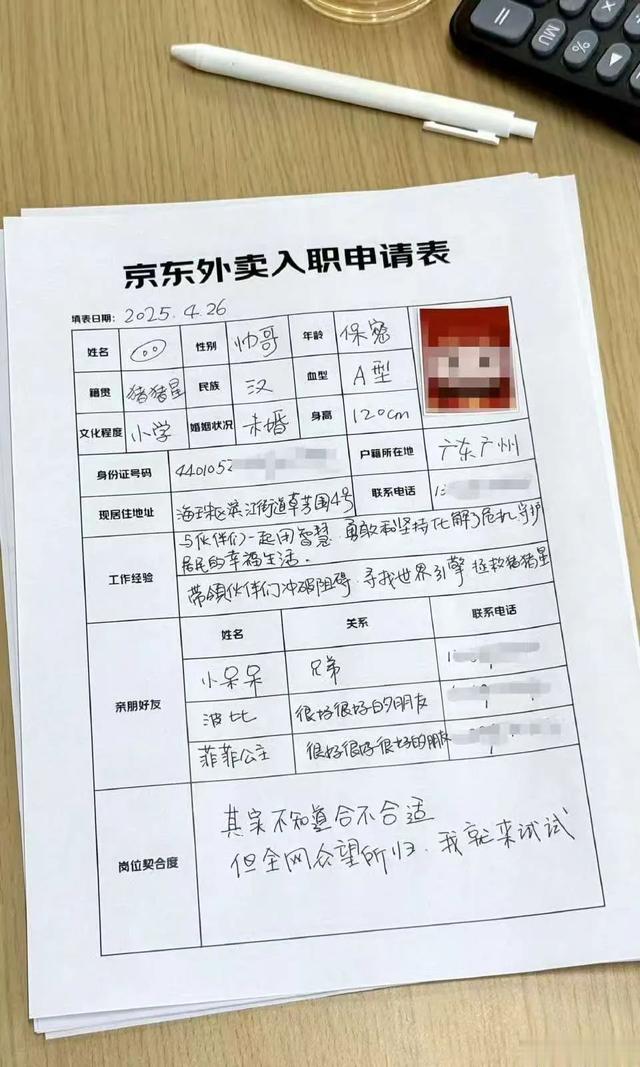 = MU
京东外卖入职申请表
填表日期: 2025.4.26
姓名 性别 帅哥 年龄 保密
籍贯 猪猪星 民族 汉 血型 A型
文化程度 小学 婚姻状况 未婚 身高 120cm
身份证号码 4401052 户籍所在地 广东广州
现居住地址 海珠区滨江街道草芳围4号 联系电话 1
工作经验
与伙伴们一起用智慧、勇敢和坚持化解了危机守护
居民的幸福生活.
带领伙伴们冲破阻碍、寻找世界引擎 拯救猪猪星
亲朋好友
姓名 关系 联系电话
小呆呆 兄弟
波比 很好很好的朋友
菲菲公主 很好很好很好的朋友
岗位契合度
其实不知道合不合适
但全网众望所归、我就来试试